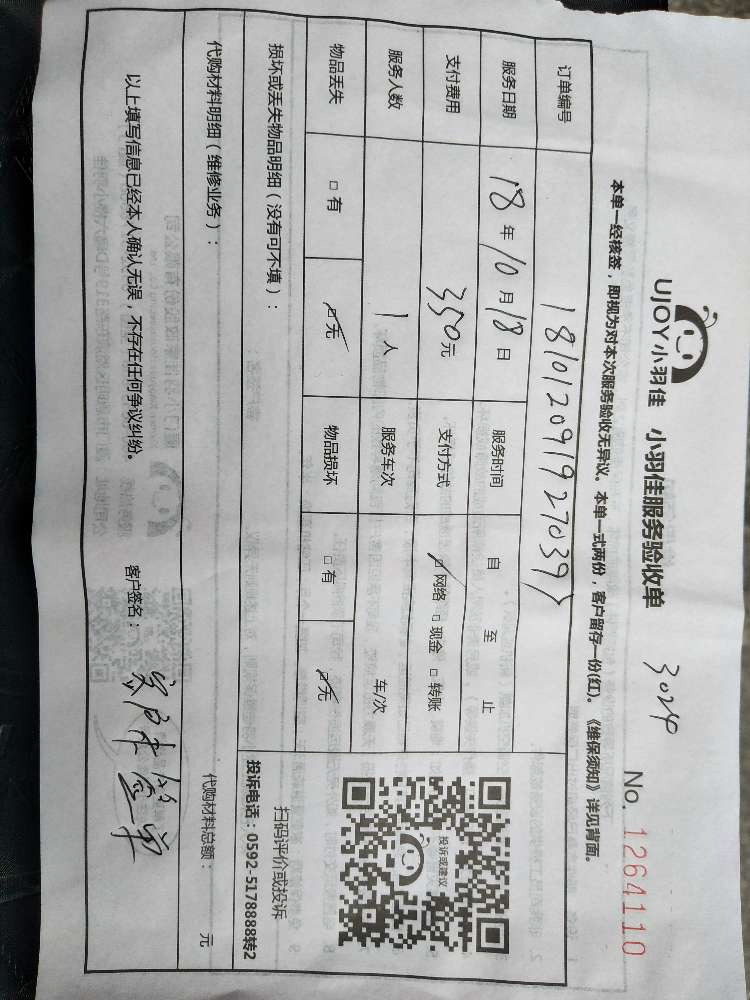 UJOY小羽佳 小羽佳服务验收单
3024
No. 1264110
本单一经核签，即视为对本次服务验收无异议。本单一式两份，客户留存一份(红)。《维保须知》详见背面。
订单编号
服务日期 18年10月18日 服务时间 自 至 止
支付费用 350元 支付方式 ☑网络 □现金 □转账
服务人数 1人 服务车次 车/次
物品丢失 □有 ☑无 物品损坏 □有 ☑无
投诉或建议
扫码评价或投诉
投诉电话：0592-5178888转2
损坏或丢失物品明细（没有可不填）：
代购材料明细（维修业务）： 代购材料总额： 元
以上填写信息已经本人确认无误，不存在任何争议纠纷。 客户签名：客户未签单